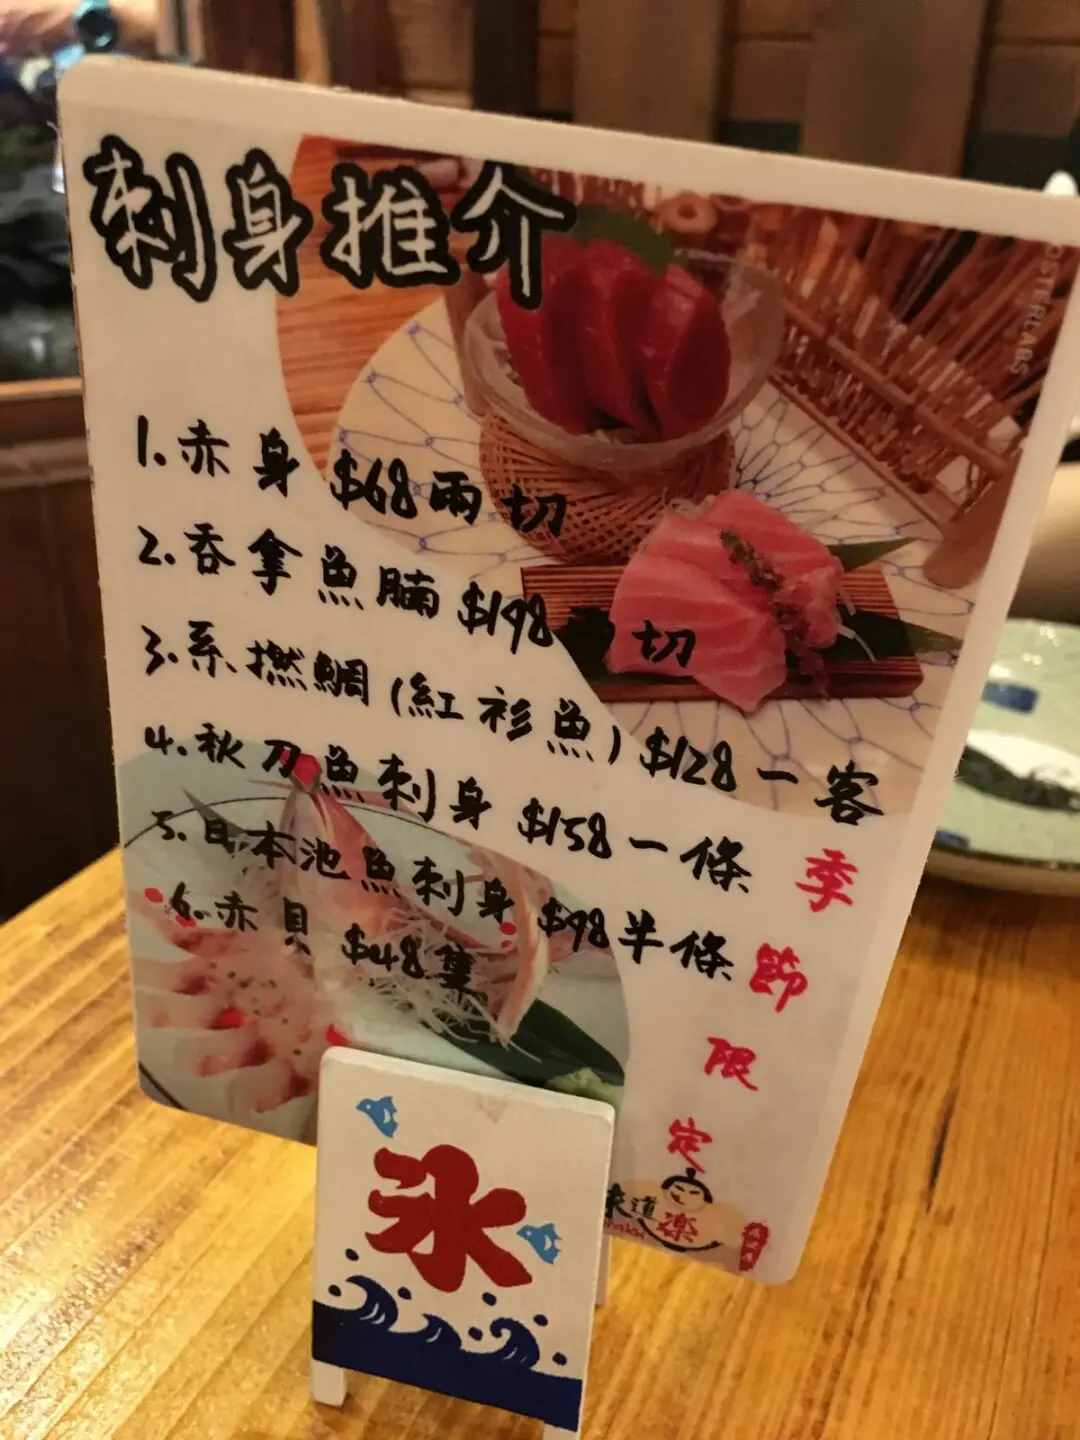 刺身推介
POSTERLABS
1.赤身 $68兩切
2.吞拿魚腩 $198 切
3.系撚鯛(紅衫魚) $128一客
4.秋刀魚刺身 $158一條
5.日本池魚刺身 $98半條
6.赤貝 $48隻
季節限定
味道楽
氷